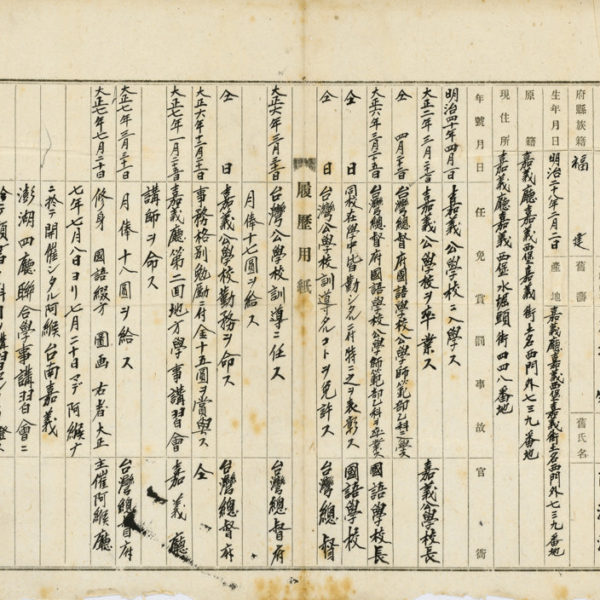 府縣族籍 福建 舊藩
生年月日 明治二十八年三月二日 產地 嘉義廳嘉義西堡嘉義街土名西門外七三九番地 舊氏名
原籍 嘉義廳嘉義西堡嘉義街土名西門外七三九番地
現住所 嘉義廳嘉義西堡水堀頭街四四八番地
年號月日 任免賞罰事故 官衙
明治四十年四月一日 嘉義公學校ニ入學ス
大正二年三月二十日 嘉義公學校ヲ卒業ス 嘉義公學校長
仝 四月 台灣總督府國語學校公學師範部乙科ニ入學ス
大正六年三月二十五日 台灣總督府國語學校公學師範部乙科ヲ卒業ス 國語學校長
仝日 同校在學中皆勤シタルニ付特ニ之ヲ表彰ス 國語學校
仝日 台灣公學校訓導タルコトヲ免許ス 台灣總督
履歷用紙
大正六年三月三十日 台灣公學校訓導ニ任ス 台灣總督府
月俸十七圓ヲ給ス
仝日 嘉義公學校勤務ヲ命ス 台灣總督府
大正六年十二月二十日 事務格別勉勵ニ付金十五圓ヲ賞與ス 仝
大正七年一月二十五日 嘉義廳第二回地方學事講習會 嘉義廳
講師ヲ命ス
大正七年三月三十一日 月俸十八圓ヲ給ス 台灣總督府
大正七年七月二十日 修身 國語綴方 圖画 右者大正 主催阿緱廳
七年七月八日ヨリ七月二十日マデ阿緱ナ
ニ於テ開催シタル阿緱台南嘉義
澎湖四廳聯合學事講習會ニ